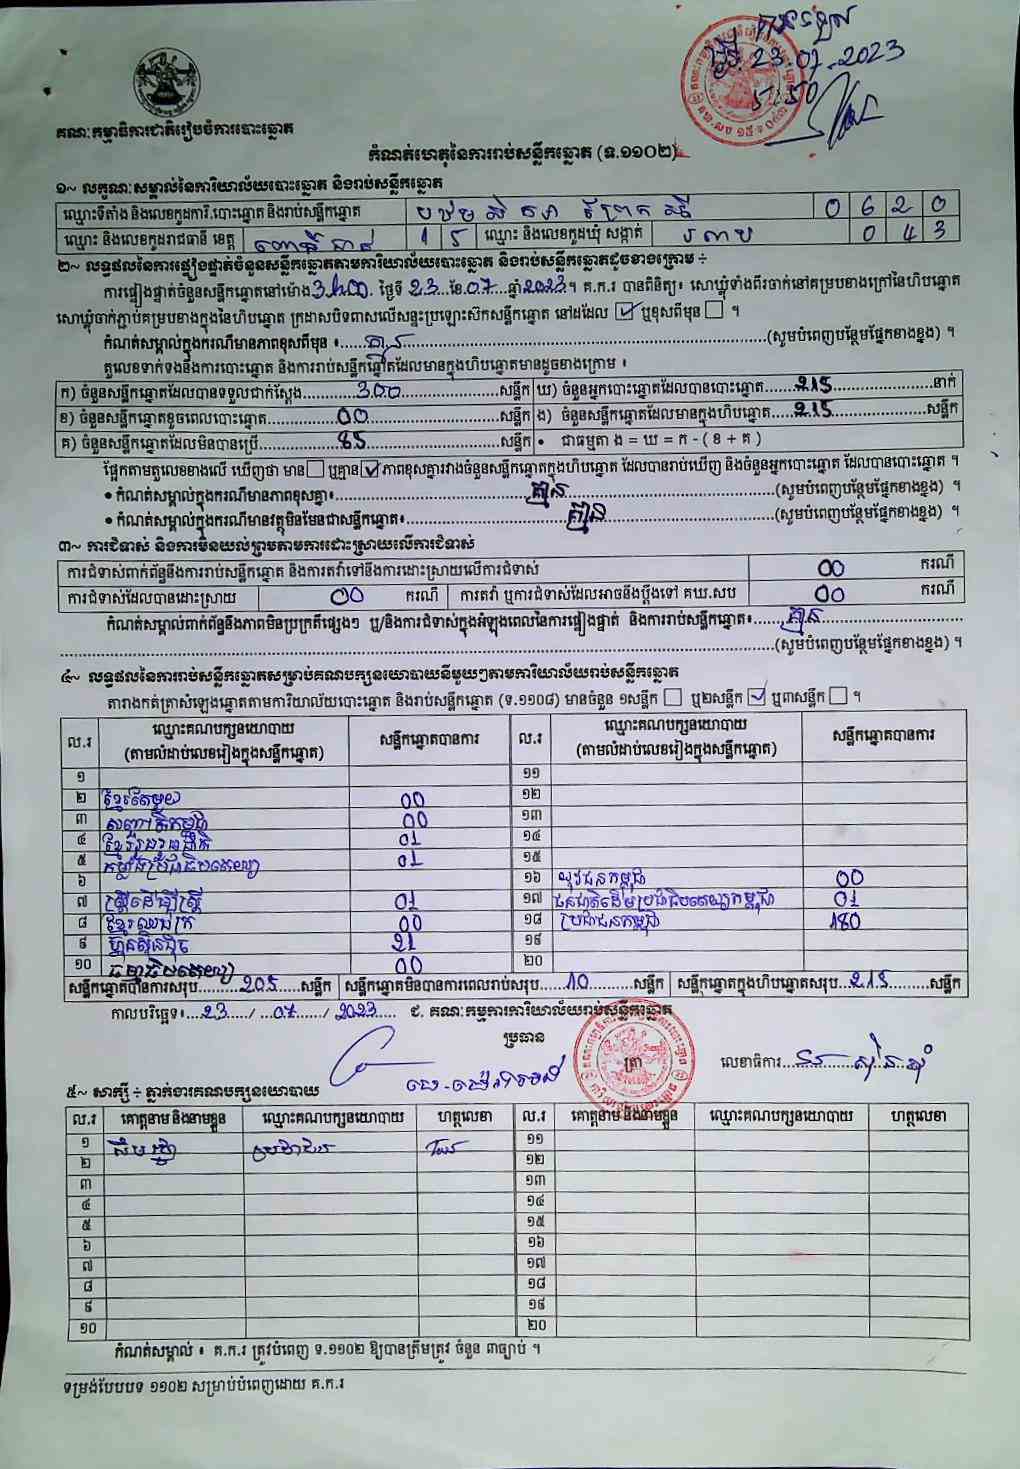 23.07.2023
5:50
គណៈកម្មាធិការជាតិរៀបចំការបោះឆ្នោត
កំណត់ហេតុនៃការរាប់សន្លឹកឆ្នោត (ទ.១១០២)
១~ លក្ខណៈសម្គាល់នៃការិយាល័យបោះឆ្នោត និងរាប់សន្លឹកឆ្នោត
ឈ្មោះទីតាំង និងលេខកូដការិ.បោះឆ្នោត និងរាប់សន្លឹកឆ្នោត 0 6 2 0
ឈ្មោះ និងលេខកូដរាជធានី ខេត្ត ពោធិ៍សាត់ 1 5 ឈ្មោះ និងលេខកូដឃុំ សង្កាត់ រលាប 0 4 3
២~ លទ្ធផលនៃការផ្ទៀងផ្ទាត់ចំនួនសន្លឹកឆ្នោតតាមការិយាល័យបោះឆ្នោត និងរាប់សន្លឹកឆ្នោតដូចខាងក្រោម ÷
ការផ្ទៀងផ្ទាត់ចំនួនសន្លឹកឆ្នោតនៅម៉ោង ថ្ងៃទី 23 ខែ 07 ឆ្នាំ 2023។ គ.ក.រ បានពិនិត្យ៖ សោឃ្លុំទាំងពីរចាក់នៅគម្របខាងក្រៅនៃហិបឆ្នោត
សោឃ្លុំចាក់ភ្ជាប់គម្របខាងក្នុងនៃហិបឆ្នោត ក្រដាសបិទពាសលើសន្ទះប្រឡោះសិកសន្លឹកឆ្នោត នៅដដែល ☑ ឬខុសពីមុន ☐ ។
កំណត់សម្គាល់ក្នុងករណីមានភាពខុសពីមុន ៖ គ្មាន (សូមបំពេញបន្ថែមផ្នែកខាងខ្នង) ។
តួលេខទាក់ទងនឹងការបោះឆ្នោត និងការរាប់សន្លឹកឆ្នោតដែលមានក្នុងហិបឆ្នោតមានដូចខាងក្រោម ៖
ក) ចំនួនសន្លឹកឆ្នោតដែលបានទទួលជាក់ស្ដែង 300 សន្លឹក ឃ) ចំនួនអ្នកបោះឆ្នោតដែលបានបោះឆ្នោត 215 នាក់
ខ) ចំនួនសន្លឹកឆ្នោតខូចពេលបោះឆ្នោត 00 សន្លឹក ង) ចំនួនសន្លឹកឆ្នោតដែលមានក្នុងហិបឆ្នោត 215 សន្លឹក
គ) ចំនួនសន្លឹកឆ្នោតដែលមិនបានប្រើ 85 សន្លឹក • ជាធម្មតា ង = ឃ = ក - ( ខ + គ )
ផ្អែកតាមតួលេខខាងលើ ឃើញថា មាន ☐ ឬគ្មាន ☑ ភាពខុសគ្នារវាងចំនួនសន្លឹកឆ្នោតក្នុងហិបឆ្នោត ដែលបានរាប់ឃើញ និងចំនួនអ្នកបោះឆ្នោត ដែលបានបោះឆ្នោត ។
• កំណត់សម្គាល់ក្នុងករណីមានភាពខុសគ្នា៖ គ្មាន (សូមបំពេញបន្ថែមផ្នែកខាងខ្នង) ។
• កំណត់សម្គាល់ក្នុងករណីមានវត្ថុមិនមែនជាសន្លឹកឆ្នោត៖ គ្មាន (សូមបំពេញបន្ថែមផ្នែកខាងខ្នង) ។
៣~ ការជំទាស់ និងការមិនយល់ព្រមតាមការដោះស្រាយលើការជំទាស់
ការជំទាស់ពាក់ព័ន្ធនឹងការរាប់សន្លឹកឆ្នោត និងការតវ៉ាទៅនឹងការដោះស្រាយលើការជំទាស់ 00 ករណី
ការជំទាស់ដែលបានដោះស្រាយ 00 ករណី ការតវ៉ា ឬការជំទាស់ដែលអាចនឹងប្ដឹងទៅ គឃ.សប 00 ករណី
កំណត់សម្គាល់ពាក់ព័ន្ធនឹងភាពមិនប្រក្រតីផ្សេងៗ ឬ/និងការជំទាស់ក្នុងអំឡុងពេលនៃការផ្ទៀងផ្ទាត់ និងការរាប់សន្លឹកឆ្នោត៖ គ្មាន
(សូមបំពេញបន្ថែមផ្នែកខាងខ្នង) ។
៤~ លទ្ធផលនៃការរាប់សន្លឹកឆ្នោតសម្រាប់គណបក្សនយោបាយនីមួយៗតាមការិយាល័យរាប់សន្លឹកឆ្នោត
តារាងកត់ត្រាសំឡេងឆ្នោតតាមការិយាល័យបោះឆ្នោត និងរាប់សន្លឹកឆ្នោត (ទ.១១០៨) មានចំនួន ១សន្លឹក ☐ ឬ២សន្លឹក ☑ ឬ៣សន្លឹក ☐ ។
ល.រ ឈ្មោះគណបក្សនយោបាយ (តាមលំដាប់លេខរៀងក្នុងសន្លឹកឆ្នោត) សន្លឹកឆ្នោតបានការ ល.រ ឈ្មោះគណបក្សនយោបាយ (តាមលំដាប់លេខរៀងក្នុងសន្លឹកឆ្នោត) សន្លឹកឆ្នោតបានការ
១ ១១
២ ខ្មែរតែមួយ 00 ១២
៣ សញ្ជាតិកម្ពុជា 00 ១៣
៤ ខ្មែររួបរួមជាតិ 01 ១៤
៥ កម្លាំងប្រជាធិបតេយ្យ 01 ១៥
៦ ១៦ យុវជនកម្ពុជា 00
៧ ស្ត្រីដើម្បីស្ត្រី 01 ១៧ ជនជាតិដើមប្រជាធិបតេយ្យកម្ពុជា 01
៨ ខ្មែរឈប់ក្រ 00 ១៨ ប្រជាជនកម្ពុជា 180
៩ ហ៊្វុនស៊ិនប៉ិច 21 ១៩
១០ ធម្មាធិបតេយ្យ 00 ២០
សន្លឹកឆ្នោតបានការសរុប 205 សន្លឹក សន្លឹកឆ្នោតមិនបានការពេលរាប់សរុប 10 សន្លឹក សន្លឹកឆ្នោតក្នុងហិបឆ្នោតសរុប 215 សន្លឹក
កាលបរិច្ឆេទ៖ 23 / 07 / 2023 ជ. គណៈកម្មការការិយាល័យរាប់សន្លឹកឆ្នោត
ប្រធាន
ត្រា
លេខាធិការ
៥~ សាក្សី ÷ ភ្នាក់ងារគណបក្សនយោបាយ
ល.រ គោត្តនាម និងនាមខ្លួន ឈ្មោះគណបក្សនយោបាយ ហត្ថលេខា ល.រ គោត្តនាម និងនាមខ្លួន ឈ្មោះគណបក្សនយោបាយ ហត្ថលេខា
១ ប្រជាជន ១១
២ ១២
៣ ១៣
៤ ១៤
៥ ១៥
៦ ១៦
៧ ១៧
៨ ១៨
៩ ១៩
១០ ២០
កំណត់សម្គាល់ ៖ គ.ក.រ ត្រូវបំពេញ ទ.១១០២ ឱ្យបានត្រឹមត្រូវ ចំនួន ៣ច្បាប់ ។
ទម្រង់បែបបទ ១១០២ សម្រាប់បំពេញដោយ គ.ក.រ